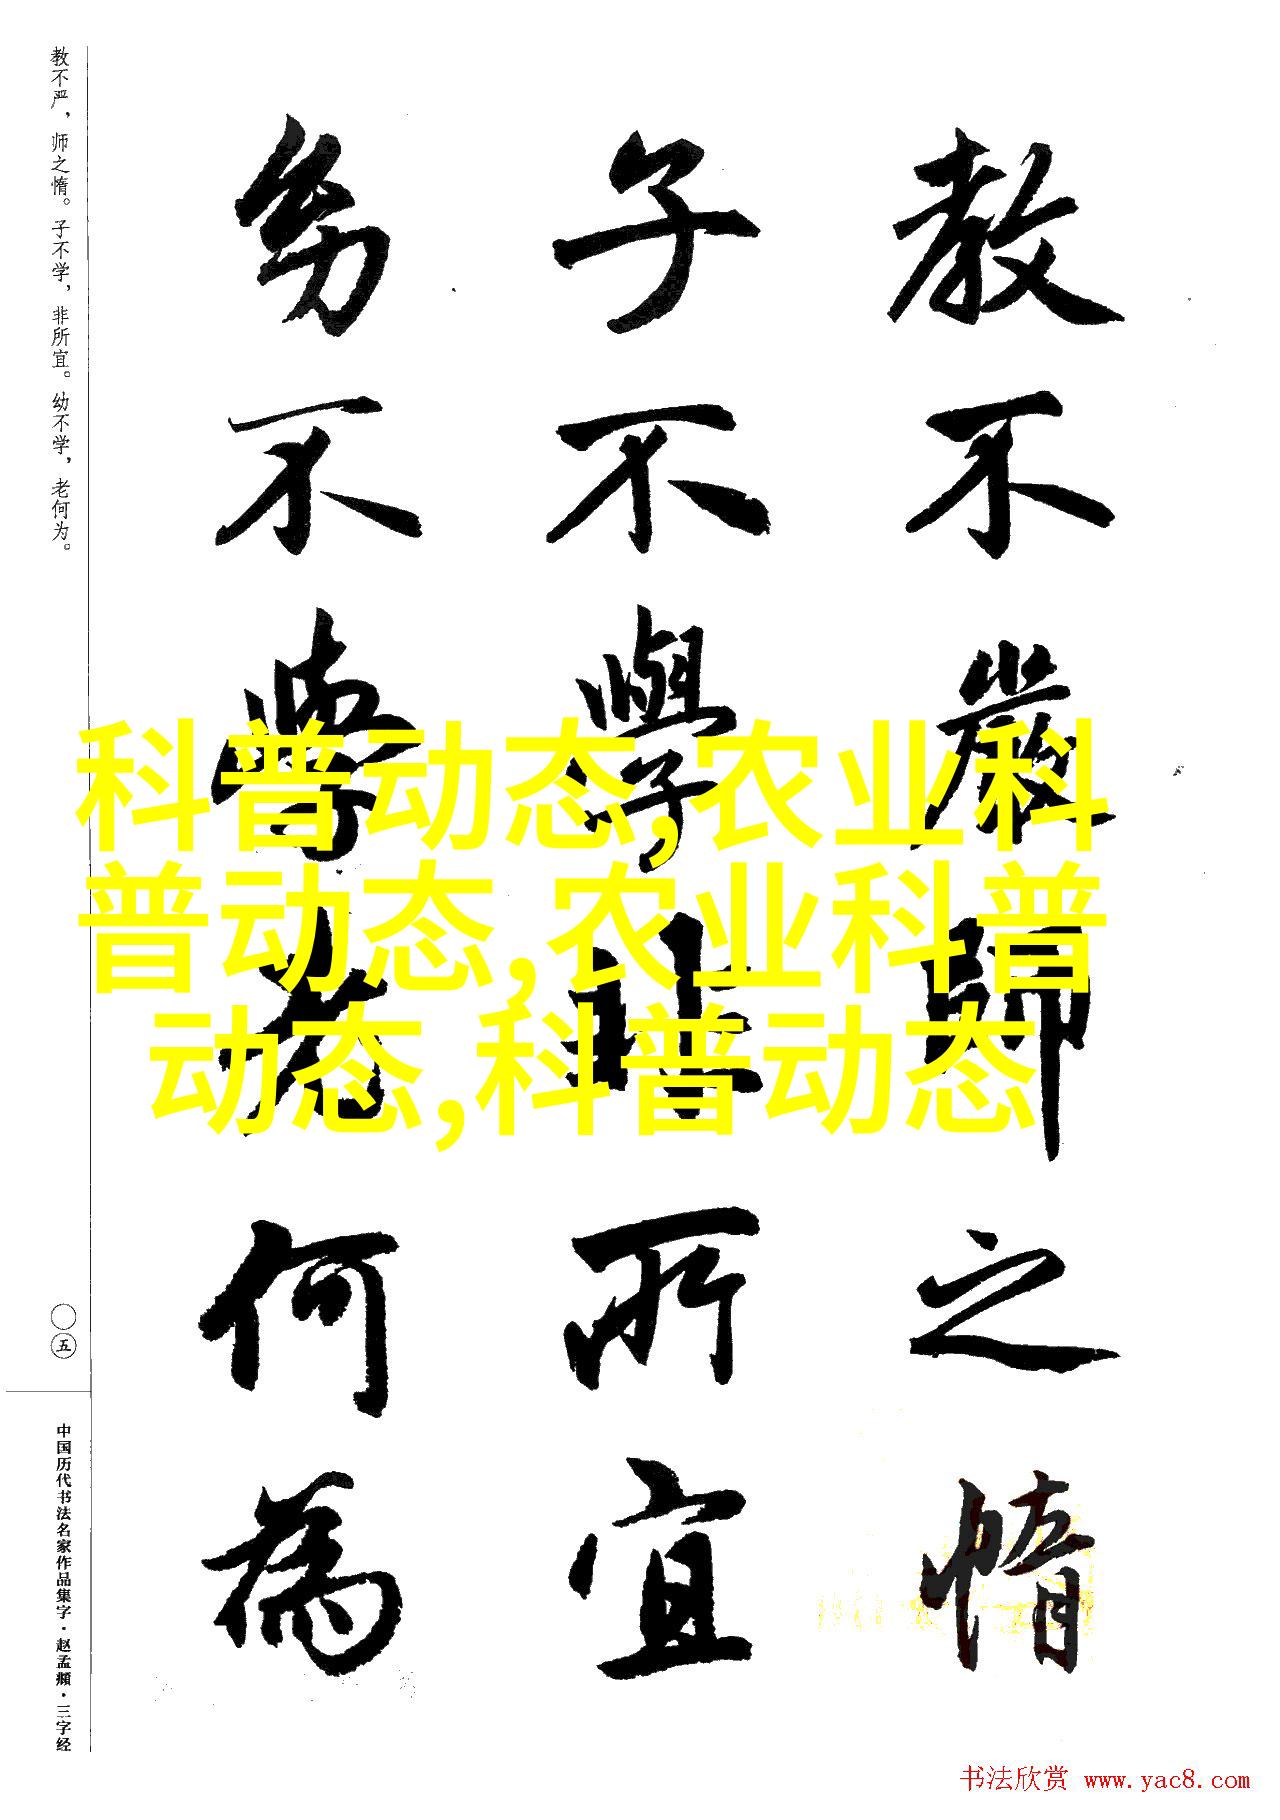 教不严，师之惰。子不学，非所宜。幼不学，老何为。
教不嚴師之惰
子不學非所宜
幼不學老何為
科普动态,农业科
普动态,农业科普
动态,科普动态
〇五
中国历代书法名家作品集字·赵孟頫·三字经
书法欣赏 www.yac8.com